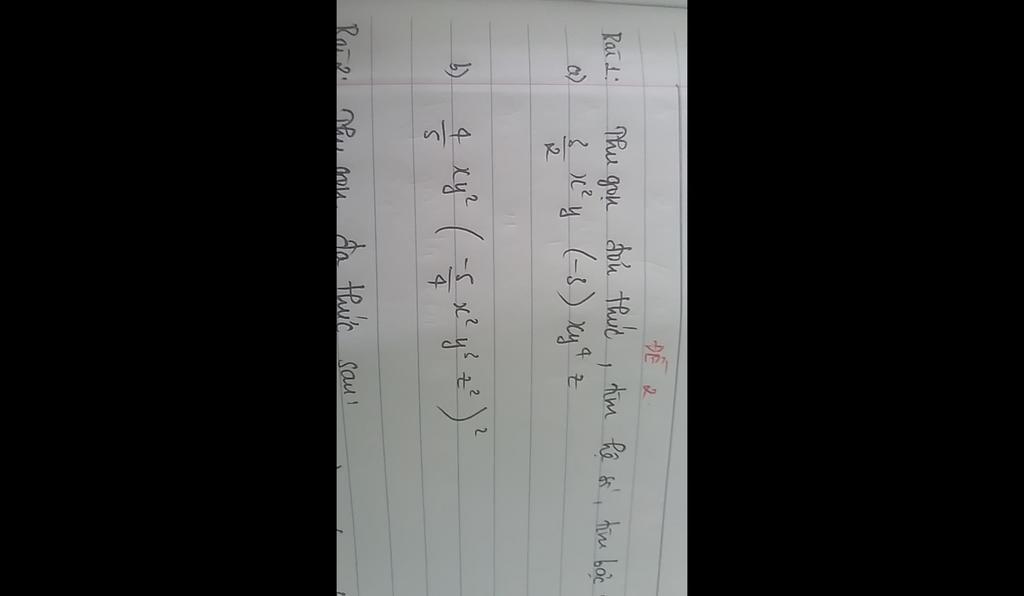 ĐỀ 2
Bài 1: Thu gọn đơn thức, tìm hệ số, tìm bậc
a) 3/2 x²y (-3) xy⁴ z
b) 4/5 xy² (-5/4 x² y³ z²)²
Bài 2: Thu gọn đa thức sau: